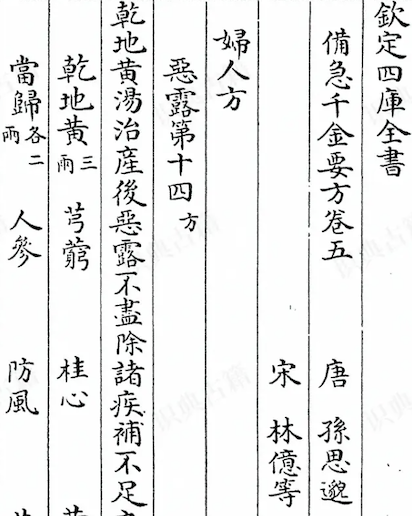 欽定四庫全書
備急千金要方卷五
唐 孫思邈
宋 林億等
婦人方
惡露第十四方
乾地黃湯治産後惡露不盡除諸疾補不足
乾地黃三兩 芎藭 桂心
當歸各二兩 人參 防風